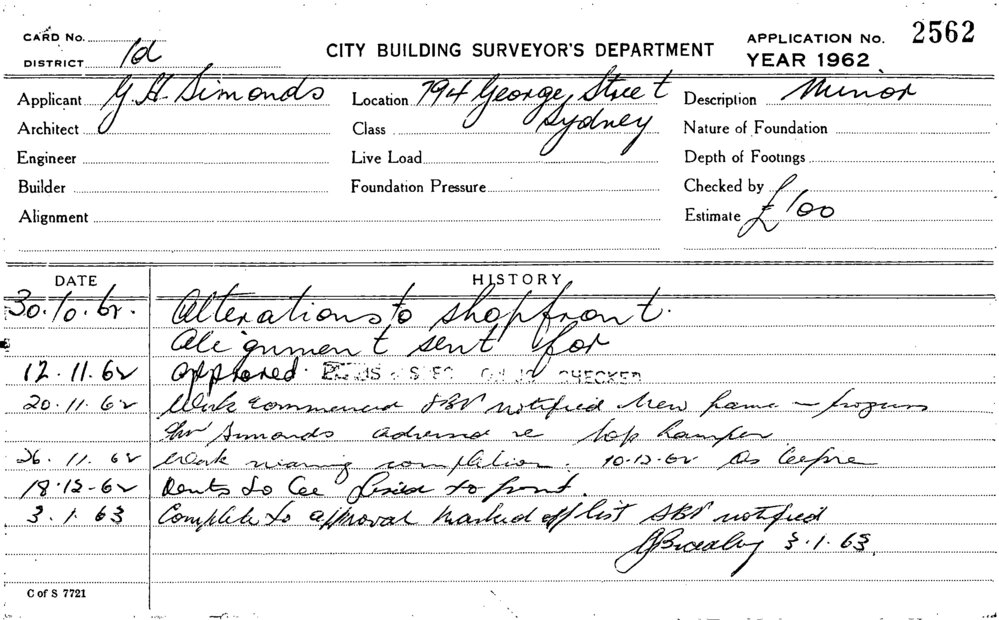 CARD No.
DISTRICT 1d
CITY BUILDING SURVEYOR'S DEPARTMENT
APPLICATION No. 2562
YEAR 1962
Applicant G. H. Simonds
Location 794 George Street Sydney
Description Minor
Architect
Class
Nature of Foundation
Engineer
Live Load
Depth of Footings
Builder
Foundation Pressure
Checked by
Alignment
Estimate £100
DATE HISTORY
30.10.62. Alterations to shopfront.
Alignment sent for
12.11.62 approved CHECKED
20.11.62 Work commenced notified New frame in progress
Mr Simonds advised re top hamper
26.11.62 Work nearing completion. 10-12-62 As before
18.12-62 to be fixed to front.
3.1.63 Complete to approval marked off list notified
3.1.63.
C of S 7721